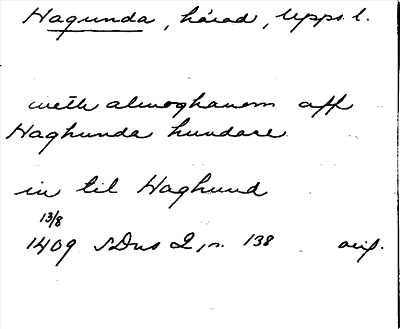 Hagunda, härad, Upps. l.
meth almoghanom aff
Haghunda hundare
in til Haghund
13/8
1409 SDns 2, s. 138 avs.